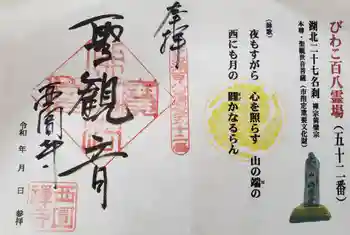 びわこ百八霊場(五十二番)
湖北二十七名刹 禅宗黄檗宗
本尊・聖観世音菩薩(市指定重要文化財)
(詠歌)
夜もすがら 心を照らす 山の端の
西にも月の 圓かなるらん
奉拝
聖観音
西圓寺
令和 年 月 日 参拝
西圓禅寺